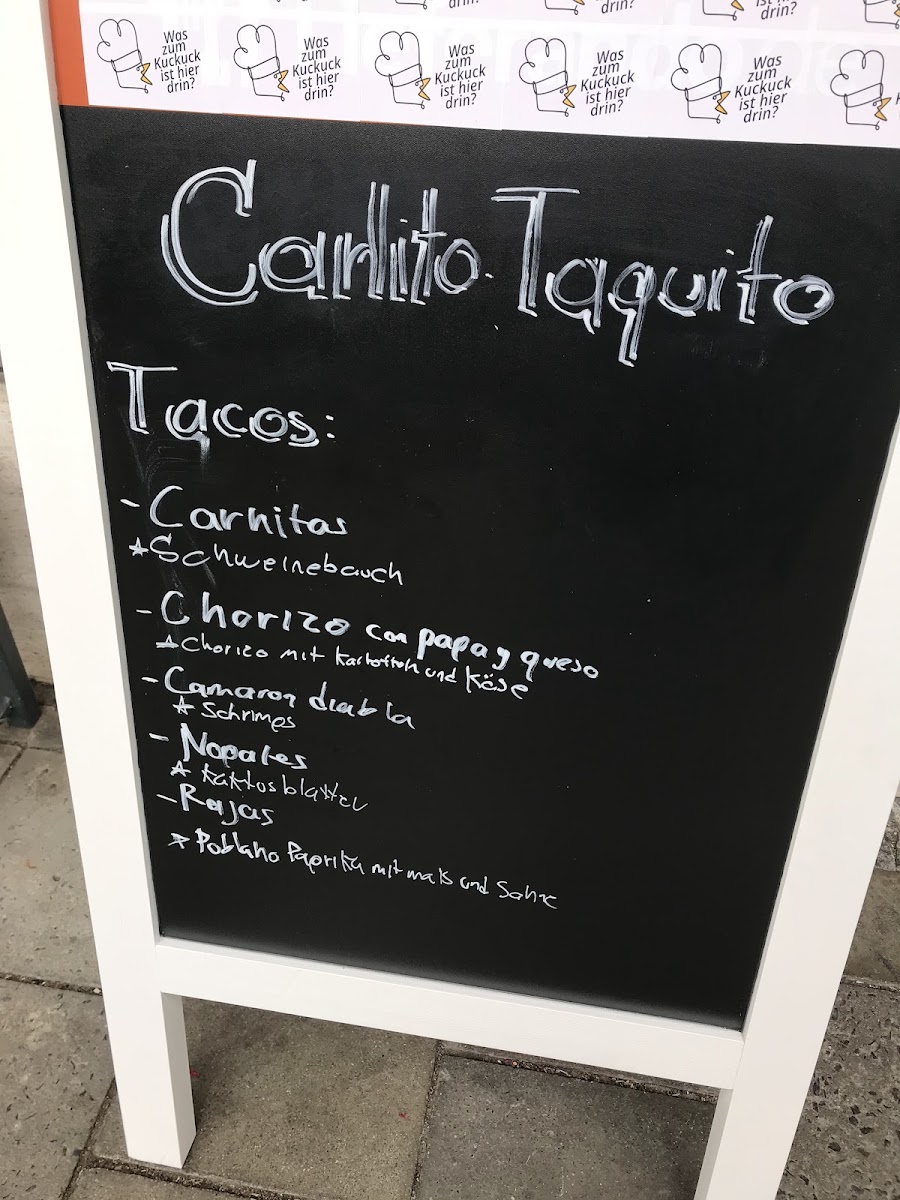 ist hier
drin?
drin?
ist hier
drin?
Was
zum
Kuckuck
ist hier
drin?
Was
zum
Kuckuck
ist hier
drin?
Was
zum
Kuckuck
ist hier
drin?
Was
zum
Kuckuck
ist hier
drin?
Was
zum
Kuckuck
ist hier
drin?
Carlito Taquito
Tacos:
- Carnitas
*Schweinebauch
- Chorizo con papa y queso
*Chorizo mit Kartoffeln und Käse
- Camaron diabla
* Schrimps
- Nopales
* Kaktosblatter
- Rajas
* Poblano Paprika mit mais und Sahne